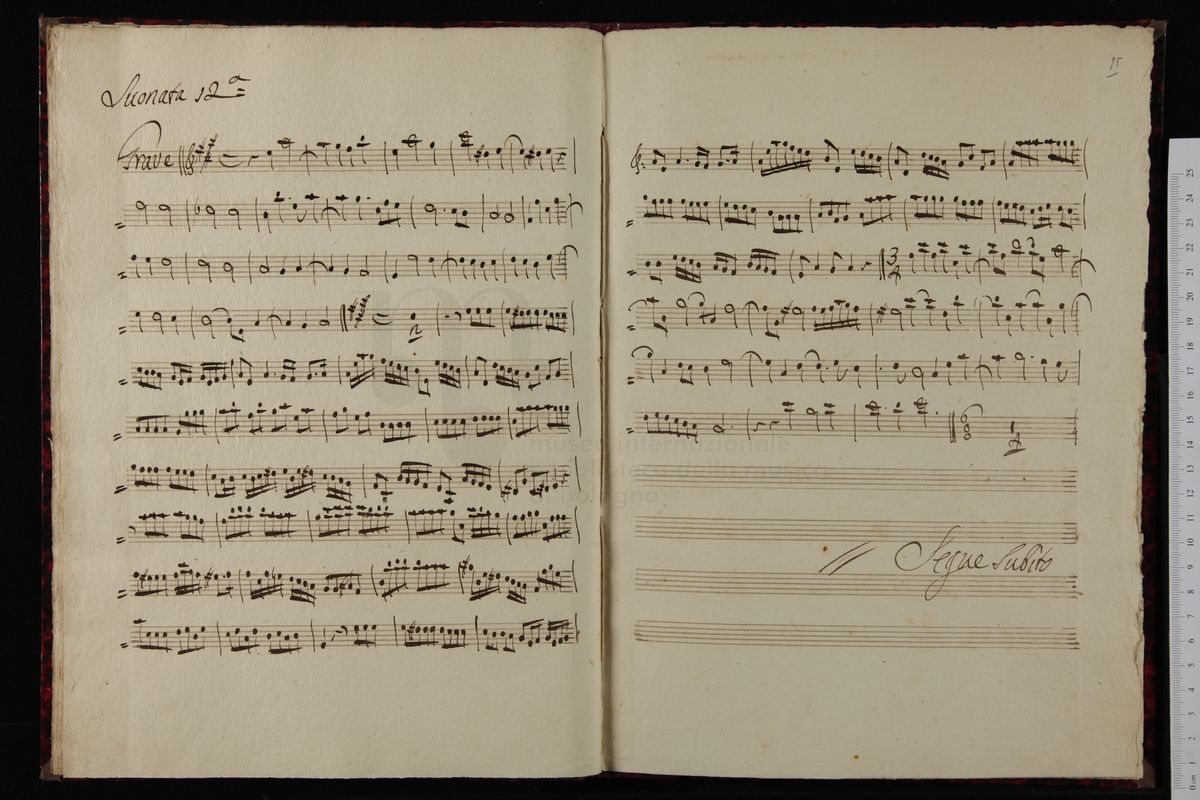 Suonata 12ª
Grave
15
3
2
Segue Subito
museo internazionale
biblioteca della musica
bologna
25
24
23
22
21
20
19
18
17
16
15
14
13
12
11
10
9
8
7
6
5
4
3
2
1
0 cm